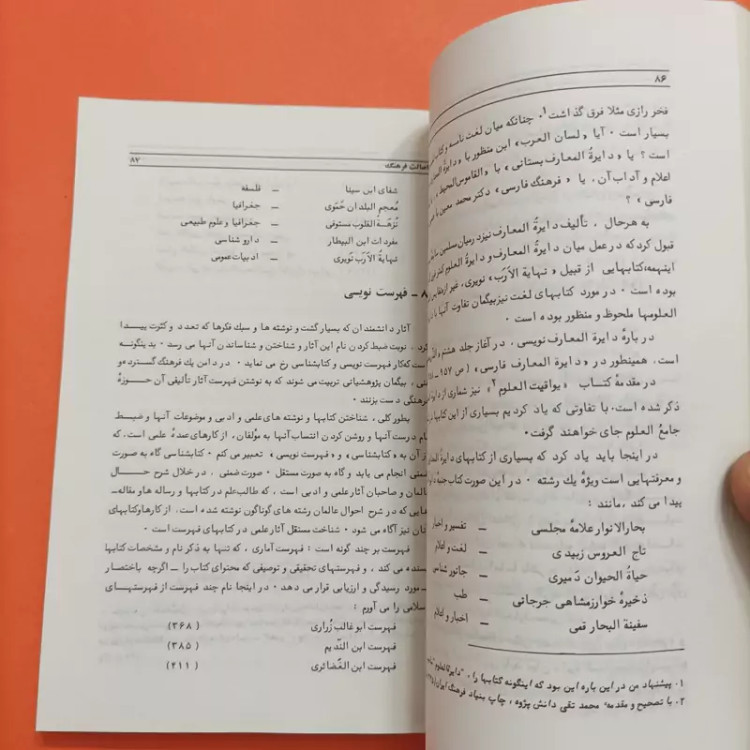 ۸۶
فخر رازی مثلا فرق گذاشت۱. چنانکه میان لغت نامه و
بسیار است ۰ آیا «لسان العرب» این منظور یا «دایرة
است ؟ یا «دایرةُ المعارف بستانی» با «القاموس
اعلام و آداب آن، یا «فرهنگ فارسی» دکتر محمد معین با
فارسی» ؟
به هرحال، تألیف دایرةُ المعارف نیز درمیان مسلمین
قبول کردکه درعمل میان دایرةُ المعارف و دایرةُ العلوم
اینهمه،کتابهایی از قبیل «نهایة الاَرَب» نویری، غیر از
بوده است ۰ در مورد کتابهای لغت نیزبیگمان تفاوت آنها با
العلومها ملحوظ و منظور بوده است ۰
در بارهٔ دایرةُ المعارف نویسی، در آغاز جلد هشتم و
است، همینطور در «دایرة المعارف فارسی» (ص ۹۵۷ ـ
در مقدمهٔ کتاب «یواقیت العلوم۲» نیز شماری از
ذکر شده است. با تفاوتی که یاد کردیم بسیاری از این کتابها
جامعُ العلوم جای خواهند گرفت۰
در اینجا باید یاد کرد که بسیاری از کتابهای دایرةُ
و معرفتهایی است ویژهٔ یک رشته ۰ در این صورت کتاب
پیدا می کند، مانند :
بحارالانوار علامهٔ مجلسی ـ تفسیر و اخبار
تاج العروس زبیدی ـ لغت و اعلام
حیاةُ الحیوان دَمیری ـ جانور شناسی
ذخیرهٔ خوارزمشاهی جرجانی ـ طب
سفینة البحار قمی ـ اخبار و اعلام
۱. پیشنهاد من در این باره این بود که اینگونه کتابها را، "دایرةالعلوم"
۲. با تصحیح و مقدمهٔ محمد تقی دانش پژوه، چاپ بنیاد فرهنگ ایران
فرهنگ ۸۷
شفای ابن سینا ـ فلسفه
مُعجم البلدان حَمَوی ـ جغرافیا
نُزهَةُ القلوب مستوفی ـ جغرافیا و علوم طبیعی
مفردات ابن البیطار ـ دارو شناسی
نهایةُ الاَرَب نُویری ـ ادبیات عمومی
۸ـ فهرست نویسی
آثار دانشمندان که بسیار گشت و نوشته ها و سبک فکرها که تعدد و کثرت پیدا
کرد، نوبت ضبط کردن نام این آثار و شناختن و شناساندن آنها می رسد ۰ بدینگونه
است که کار فهرست نویسی و کتابشناسی رخ می نماید ۰ در دامن یك فرهنگ گسترده و
بیگمان پژوهشیانی تربیت می شوند که به نوشتن فهرست آثار تألیفی آن حوزهٔ
فرهنگی دست یزنند ۰
بطور کلی، شناختن کتابها و نوشته های علمی و ادبی و موضوعات آنها و ضبط
نام درست آنها و روشن کردن انتساب آنها به مؤلفان، از کارهای عمدهٔ علمی است، که
از آن به «کتابشناسی» و «فهرست نویسی» تعبیر می کنم ۰ کتابشناسی گاه به صورت
ضمنی انجام می یابد و گاه به صورت مستقل ۰ صورت ضمنی، در خلال شرح حال
عالمان و صاحبان آثار علمی و ادبی است، که طالب علم در کتابها و رساله ها و مقاله‌ـ
هایی که در شرح احوال عالمان رشته های گوناگون نوشته شده است، از کارها و کتابهای
آنان نیز آگاه می شود ۰ شناخت مستقل آثار علمی در کتابهای فهرست است ۰
فهرست بر چند گونه است : فهرست آماری، که تنها به ذکر نام و مشخصات کتابها
بسنده می کند، و فهرستهای تحقیقی و توصیفی که محتوای کتاب را ـ اگرچه باختصار
ـ مورد رسیدگی و ارزیابی قرار می دهد ۰ در اینجا نام چند فهرست از فهرستهای
اسلامی را می آورم :
فهرست ابو غالب زُراری (۳۶۸)
فهرست ابن النَّدیم (۳۸۵)
فهرست ابن الغضائری (۴۱۱)